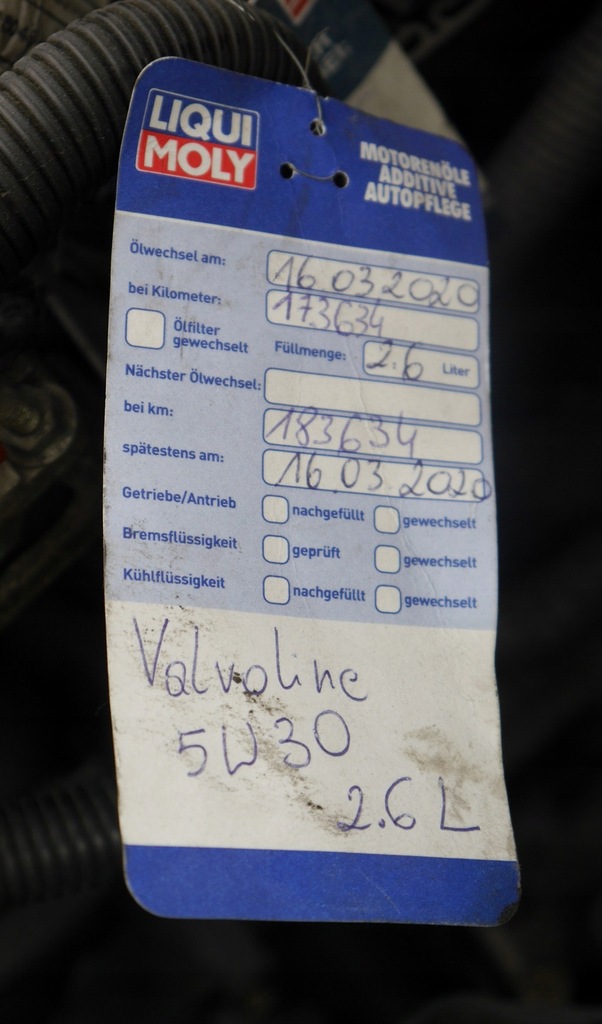 LIQUI
MOLY
MOTORENÖLE
ADDITIVE
AUTOPFLEGE
Ölwechsel am: 16 03 2020
bei Kilometer: 173634
Ölfilter
gewechselt
Füllmenge: 2.6 Liter
Nächster Ölwechsel:
bei km: 183634
spätestens am: 16.03.2020
Getriebe/Antrieb nachgefüllt gewechselt
Bremsflüssigkeit geprüft gewechselt
Kühlflüssigkeit nachgefüllt gewechselt
Valvoline
5W30
2.6 L